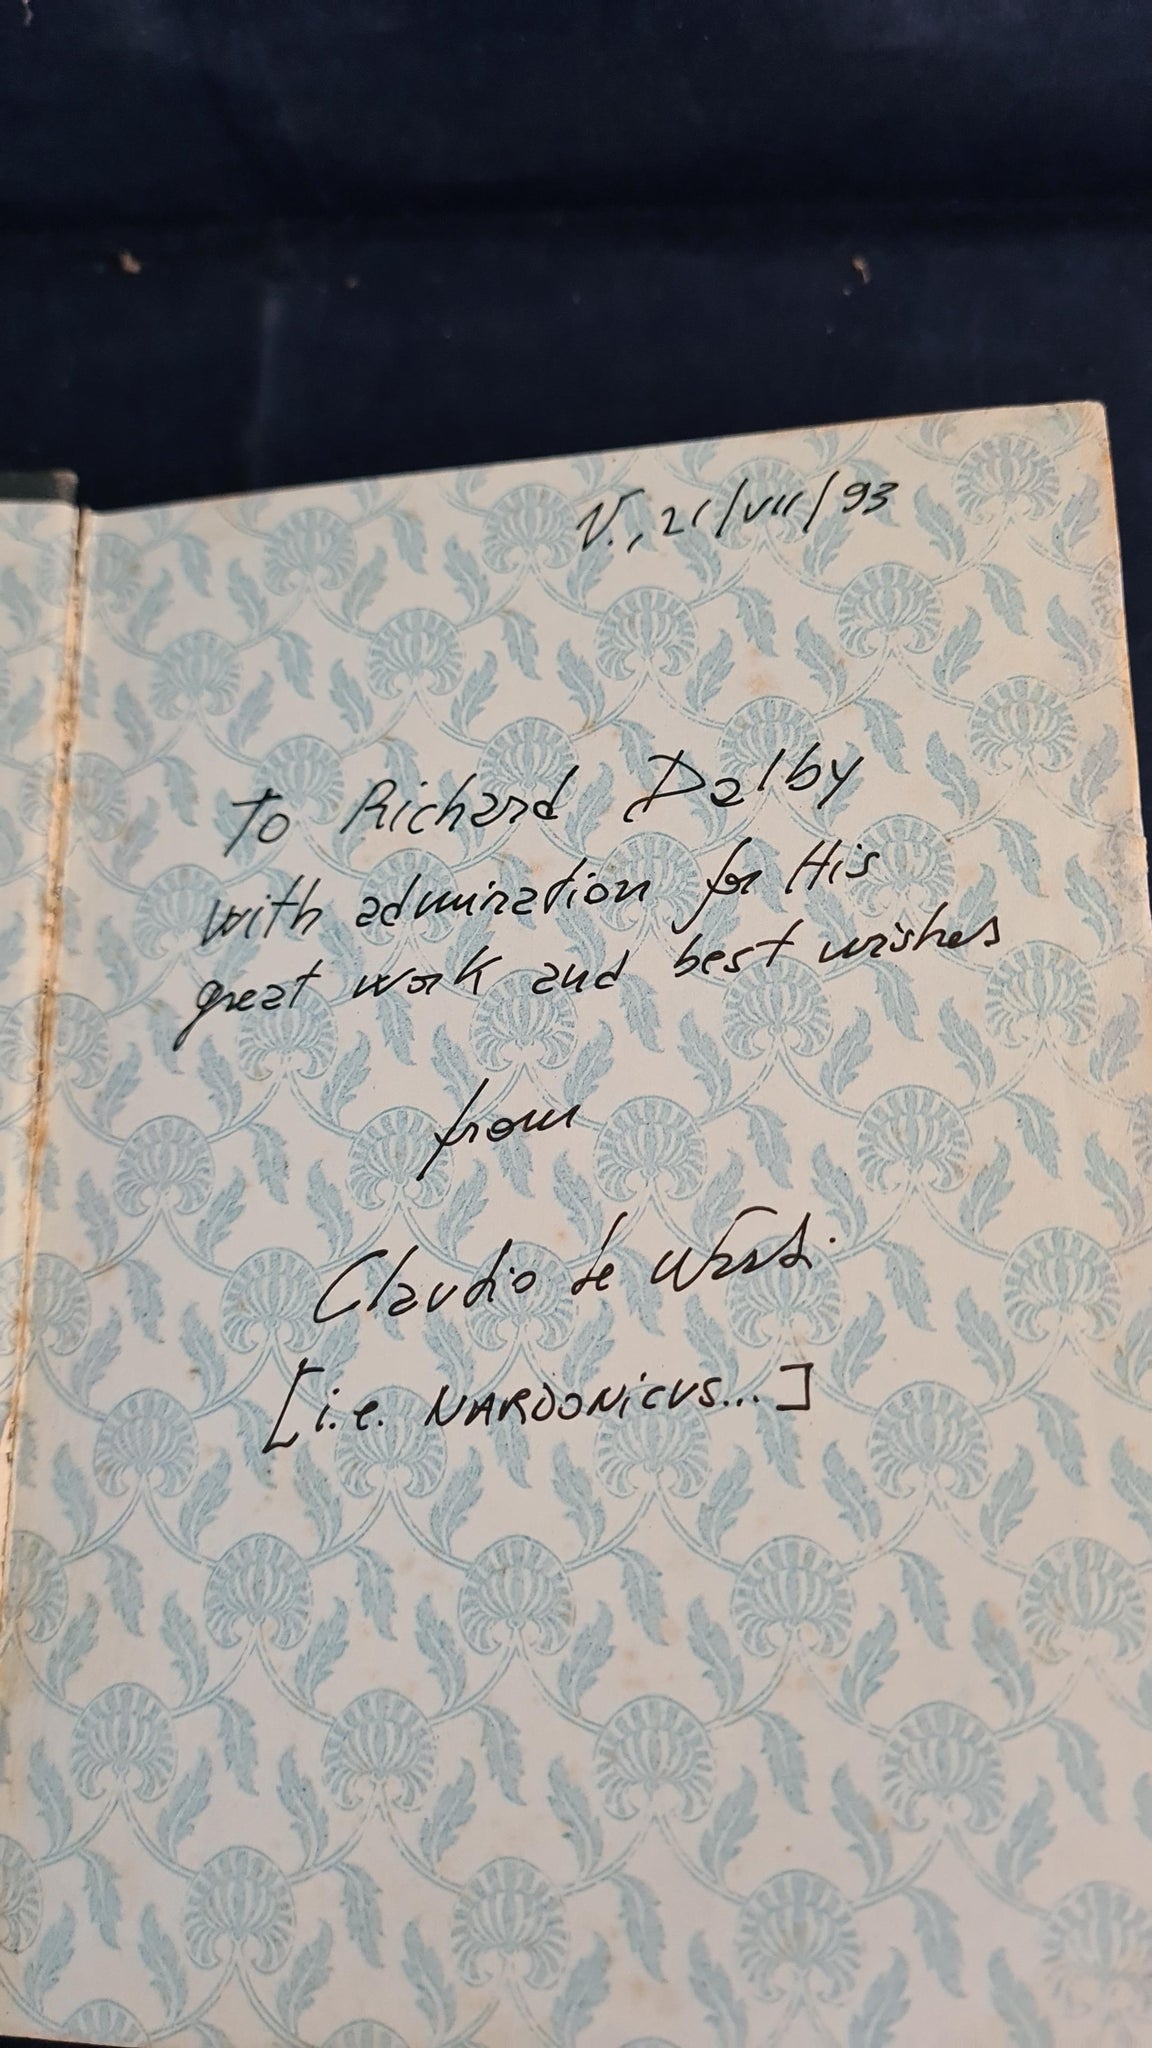 V., 21/VII/93
To Richard Dalby
with admiration for His
great work and best wishes
from
Claudio de
[i.e. NARDONICUS...]